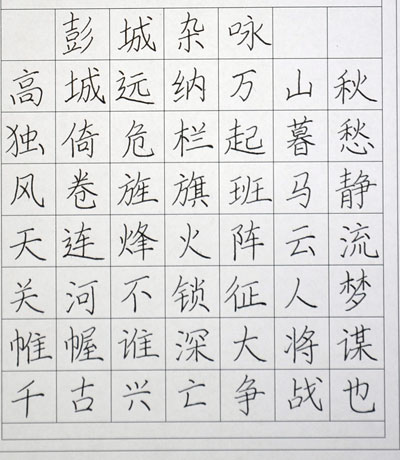 彭城杂咏
高城远纳万山秋
独倚危栏起暮愁
风卷旌旗班马静
天连烽火阵云流
关河不锁征人梦
帷幄谁深大将谋
千古兴亡争战也